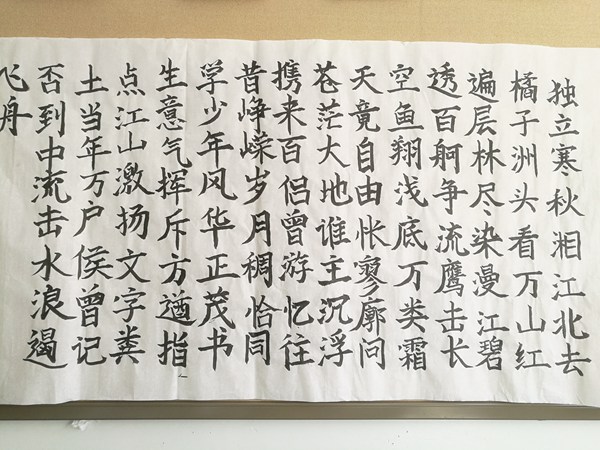 独立寒秋湘江北去
橘子洲头看万山红
遍层林尽染漫江碧
透百舸争流鹰击长
空鱼翔浅底万类霜
天竟自由怅寥廓问
苍茫大地谁主沉浮
携来百侣曾游忆往
昔峥嵘岁月稠恰同
学少年风华正茂书
生意气挥斥方遒指
点江山激扬文字粪
土当年万户侯曾记
否到中流击水浪遏
飞舟